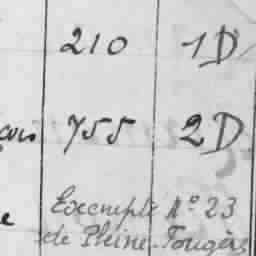 210 1D
755 2D
Exempte N° 23
de Pleine-Fougères